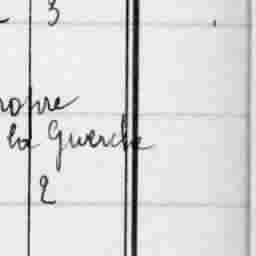 3
la Guerche
2